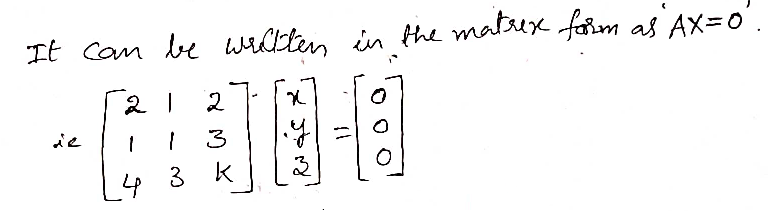 It can be written in the matrix form as 'AX=0'.
ie [2 1 2; 1 1 3; 4 3 K] [x; y; z] = [0; 0; 0]